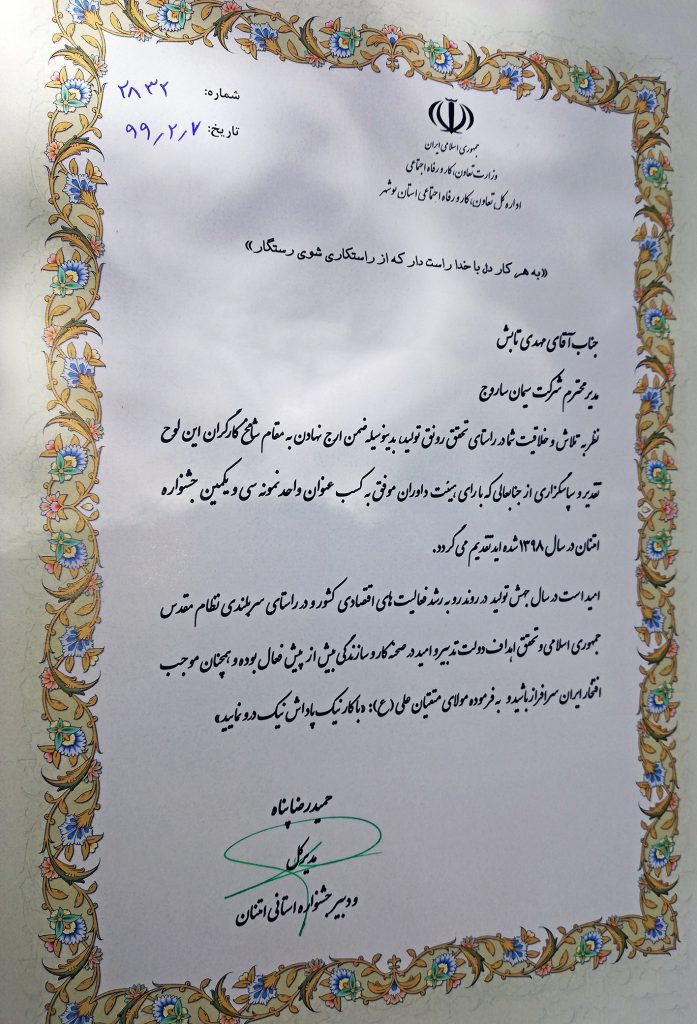 شماره: ۲۸۳۲
تاریخ: ۹۹٫۲٫۷
جمهوری اسلامی ایران
وزارت تعاون، کار و رفاه اجتماعی
اداره کل تعاون، کار و رفاه اجتماعی استان بوشهر
«به هر کار دل با خدا راست دار که از راستکاری شوی رستگار»
جناب آقای مهدی تابش
مدیر محترم شرکت سیمان ساروج
نظر به تلاش و خلاقیت شما در راستای تحقق رونق تولید، بدینوسیله ضمن ارج نهادن به مقام شامخ کارگران این لوح
تقدیر و سپاسگزاری از جنابعالی که با رای هیئت داوران موفق به کسب عنوان واحد نمونه سی و یکمین جشنواره
امتنان در سال ۱۳۹۸ شده اید تقدیم می گردد.
امید است در سال جهش تولید در روند رو به رشد فعالیت های اقتصادی کشور و در راستای سربلندی نظام مقدس
جمهوری اسلامی و تحقق اهداف دولت تدبیر و امید در صحنه کار و سازندگی بیش از پیش فعال بوده و همچنان موجب
افتخار ایران سرافراز باشید و به فرموده مولای متقیان علی (ع): «با کار نیک پاداش نیک درو نمایید»
حمیدرضا پناه
مدیرکل
و دبیر جشنواره استانی امتنان